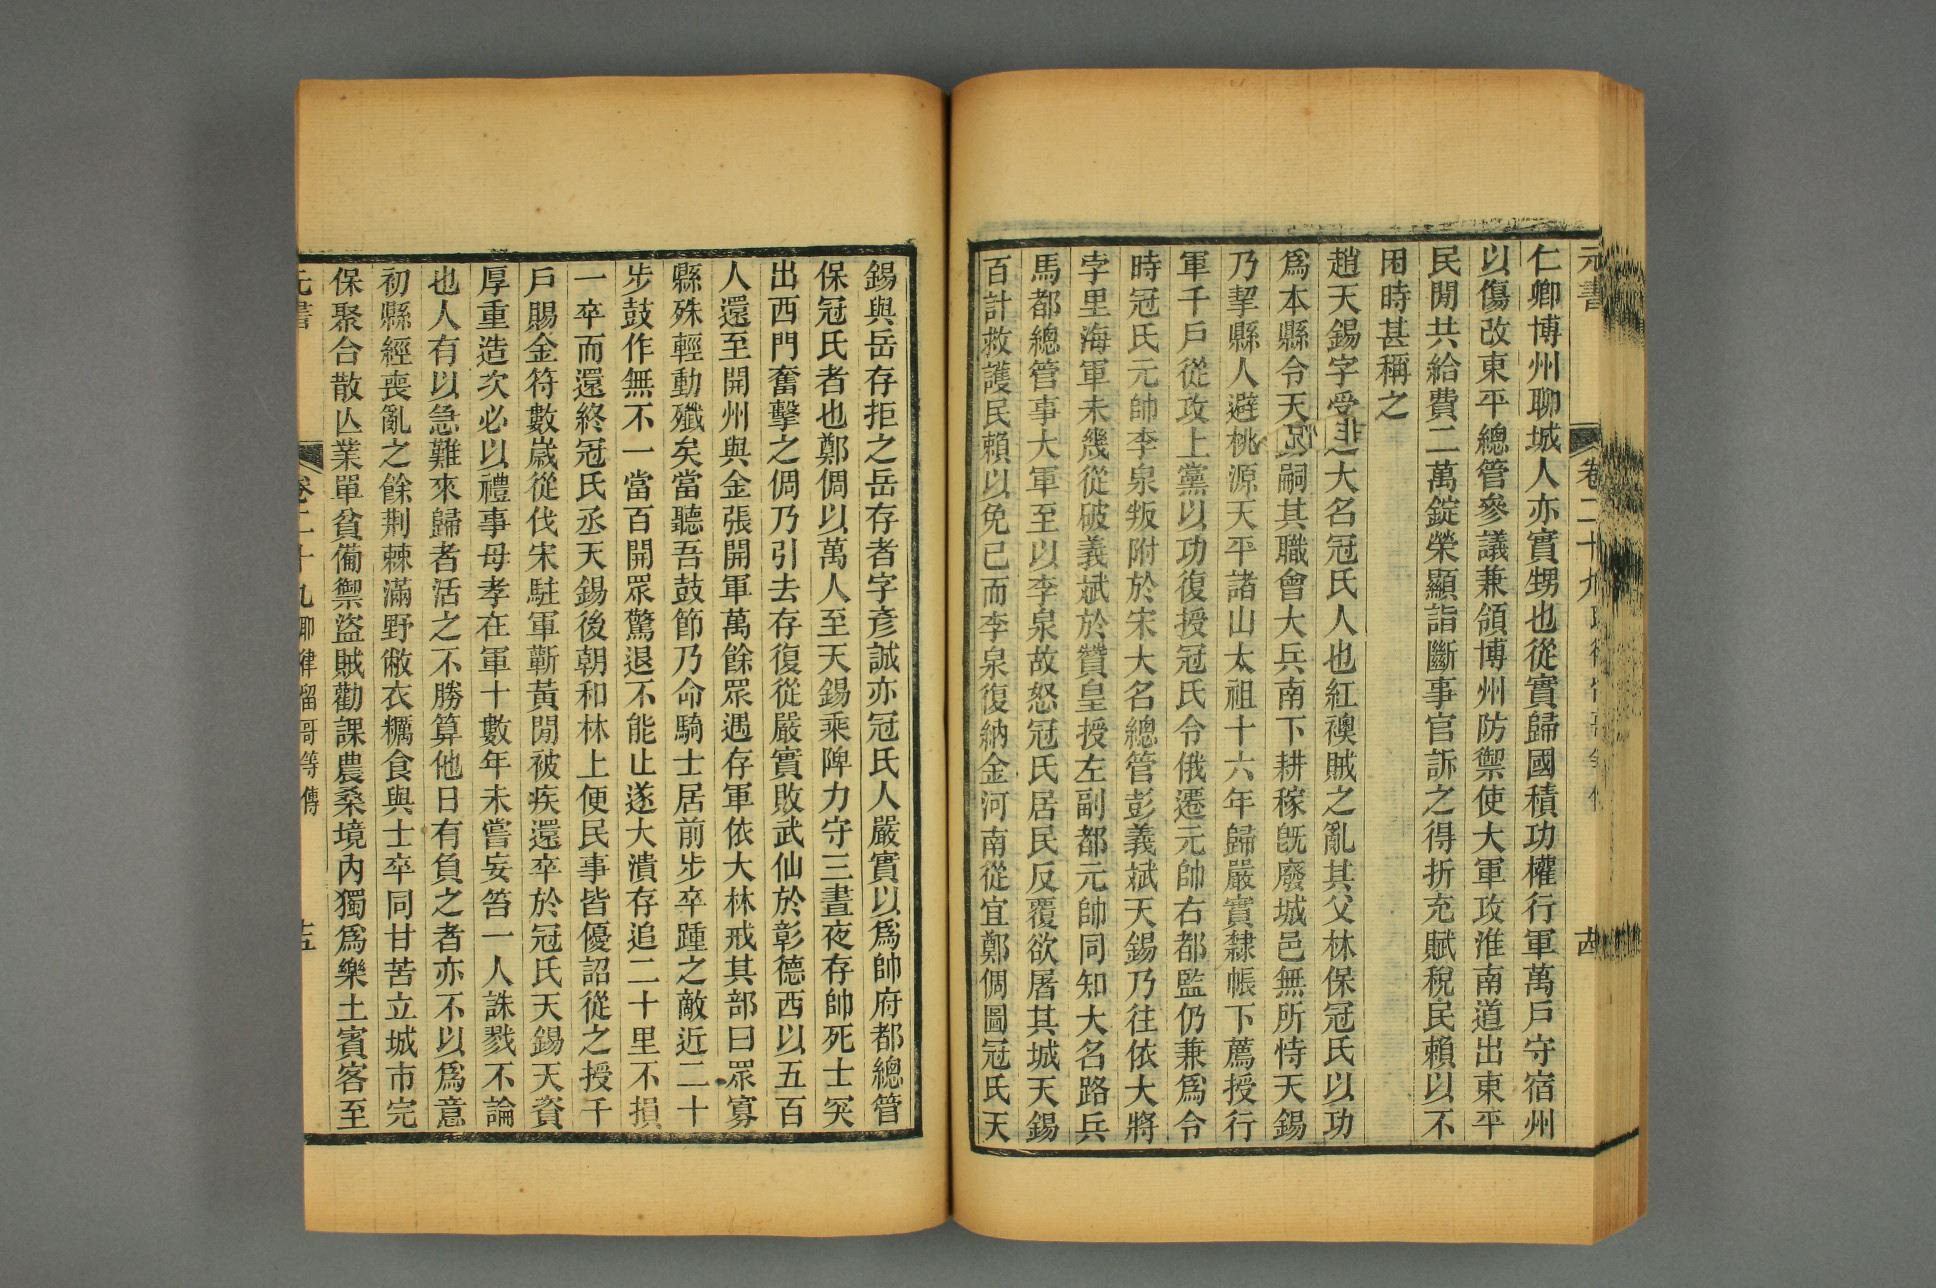 元書 卷二十九 十四
仁卿博州聊城人亦實甥也從實歸國積功權行軍萬戶守宿州
以傷改東平總管參議兼領博州防禦使大軍攻淮南道出東平
民閒共給費二萬錠榮顯詣斷事官訴之得折充賦稅民賴以不
困時甚稱之
趙天錫字受之大名冠氏人也紅襖賊之亂其父林保冠氏以功
爲本縣令天錫嗣其職會大兵南下耕稼旣廢城邑無所恃天錫
乃挈縣人避桃源天平諸山太祖十六年歸嚴實隸帳下薦授行
軍千戶從攻上黨以功復授冠氏令俄遷元帥右都監仍兼爲令
時冠氏元帥李泉叛附於宋大名總管彭義斌天錫乃往依大將
孛里海軍未幾從破義斌於贊皇授左副都元帥同知大名路兵
馬都總管事大軍至以李泉故怒冠氏居民反覆欲屠其城天錫
百計救護民賴以免已而李泉復納金河南從宜鄭倜圖冠氏天
錫與岳存拒之岳存者字彥誠亦冠氏人嚴實以爲帥府都總管
保冠氏者也鄭倜以萬人至天錫乘陴力守三晝夜存帥死士突
出西門奮擊之倜乃引去存復從嚴實敗武仙於彰德西以五百
人還至開州與金張開軍萬餘眾遇存軍依大林戒其部曰眾寡
縣殊輕動殲矣當聽吾鼓節乃命騎士居前步卒踵之敵近二十
步鼓作無不一當百開眾驚退不能止遂大潰存追二十里不損
一卒而還終冠氏丞天錫後朝和林上便民事皆優詔從之授千
戶賜金符數歲從伐宋駐軍蘄黃閒被疾還卒於冠氏天錫天資
厚重造次必以禮事母孝在軍十數年未嘗妄笞一人誅戮不論
也人有以急難來歸者活之不勝算他日有負之者亦不以爲意
初縣經喪亂之餘荆棘滿野敝衣糲食與士卒同甘苦立城市完
保聚合散亾業單貧備禦盜賊勸課農桑境內獨爲樂土賓客至
元書 卷二十九耶律畱哥等傳 十五